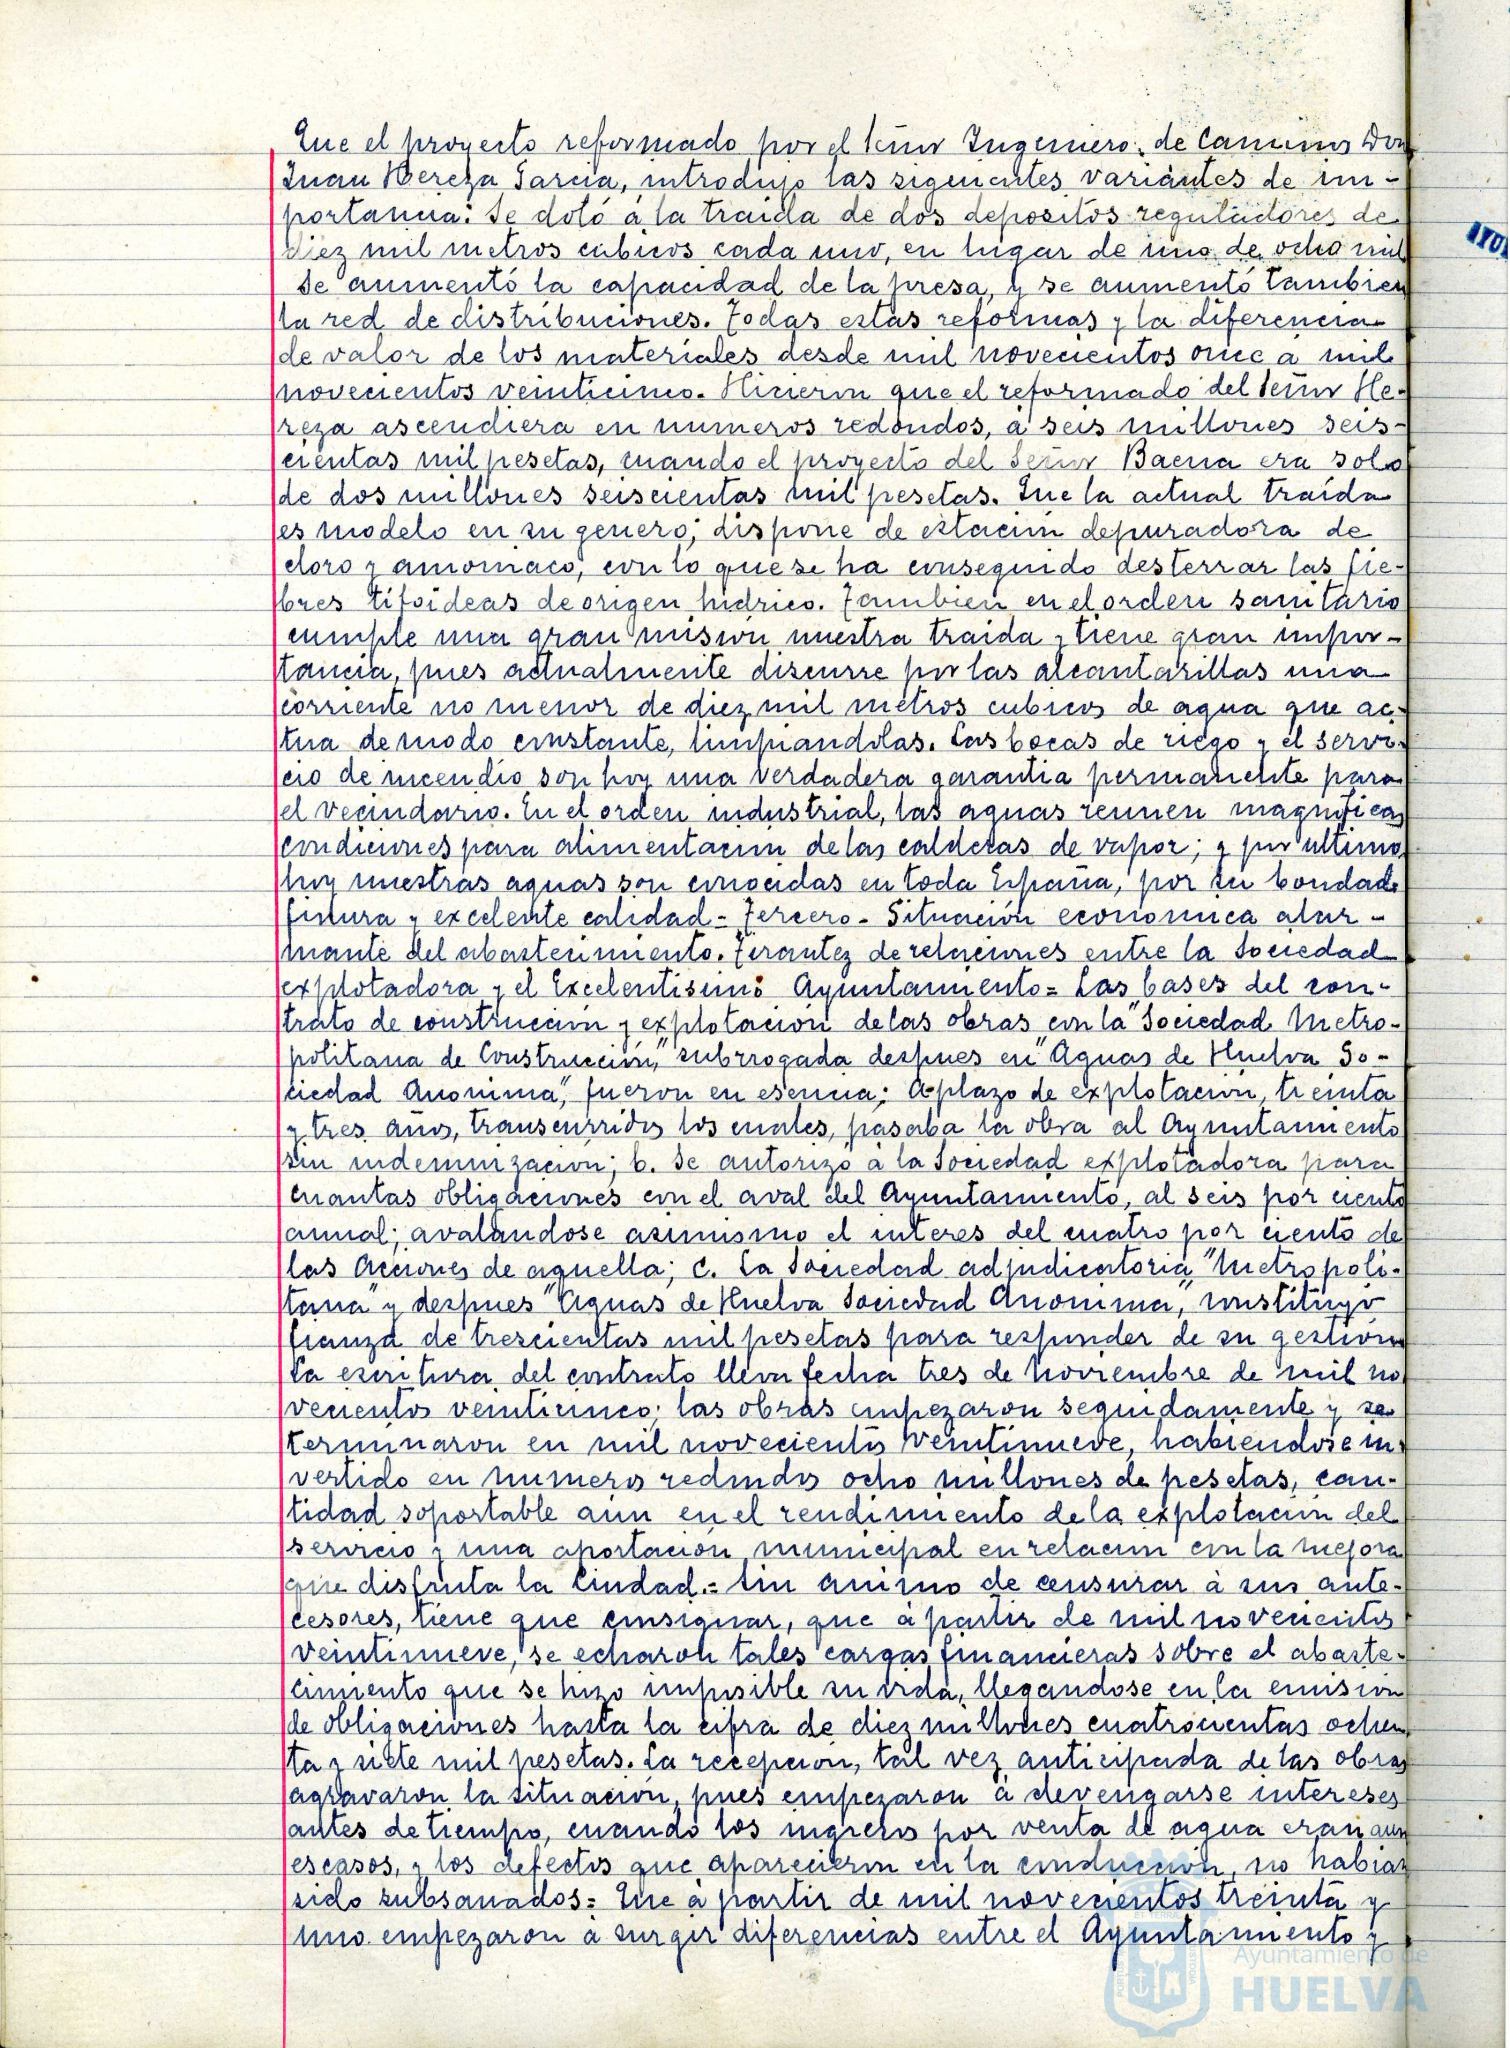 Que el proyecto reformado por el Señor Ingeniero de Caminos Don
Juan Hereza Garcia, introdujo las siguientes variantes de im-
portancia: Se dotó á la traida de dos depositos reguladores de
diez mil metros cubicos cada uno, en lugar de uno de ocho mil
Se aumentó la capacidad de la presa, y se aumentó tambien
la red de distribuciones. Todas estas reformas y la diferencia
de valor de los materiales desde mil novecientos once á mil
novecientos veinticinco. Hicieron que el reformado del Señor He-
reza ascendiera en numeros redondos, á seis millones seis-
cientas mil pesetas, cuando el proyecto del Señor Baena era solo
de dos millones seiscientas mil pesetas. Que la actual traida
es modelo en su genero; dispone de estación depuradora de
cloro y amoniaco, con lo que se ha conseguido desterrar las fie-
bres tifoideas de origen hidrico. Tambien en el orden sanitario
cumple una gran misión nuestra traida y tiene gran impor-
tancia, pues actualmente discurre por las alcantarillas una
corriente no menor de diez mil metros cubicos de agua que ac-
tua de modo constante, limpiandolas. Las bocas de riego y el servi-
cio de incendio son hoy una verdadera garantia permanente para
el vecindario. En el orden industrial, las aguas reunen magnificas
condiciones para alimentación de las calderas de vapor; y por ultimo,
hoy nuestras aguas son conocidas en toda España, por su bondad
finura y excelente calidad = Tercero - Situación economica alar-
mante del abastecimiento. Tirantez de relaciones entre la Sociedad
explotadora y el Excelentisimo Ayuntamiento = Las bases del con-
trato de construccion y explotación de las obras con la "Sociedad Metro-
politana de Construcción," subrrogada despues en "Aguas de Huelva So-
ciedad Anonima", fueron en esencia: a plazo de explotación, treinta
y tres años, transcurridos los cuales, pasaba la obra al Ayuntamiento
sin indemnización; b. Se autorizó á la Sociedad explotadora para
cuantas obligaciones con el aval del Ayuntamiento, al seis por ciento
anual; avalandose asimismo el interes del cuatro por ciento de
las Acciones de aquella; c. La Sociedad adjudicatoria "Metropoli-
tana" y despues "Aguas de Huelva Sociedad Anonima", constituyó
fianza de trescientas mil pesetas para responder de su gestión
La escritura del contrato lleva fecha tres de Noviembre de mil no
vecientos veinticinco; las obras empezaron seguidamente y se
terminaron en mil novecientos veintinueve, habiendose in-
vertido en numeros redondos ocho millones de pesetas, can-
tidad soportable aun en el rendimiento de la explotación del
servicio y una aportación municipal en relación con la mejora
que disfruta la Ciudad. = Sin animo de censurar á sus ante-
cesores, tiene que consignar, que á partir de mil novecientos
veintinueve, se echaron tales cargas financieras sobre el abaste-
cimiento que se hizo imposible su vida, llegandose en la emisión
de obligaciones hasta la cifra de diez millones cuatrocientas ochen
ta y siete mil pesetas. La recepción, tal vez anticipada de las obras
agravaron la situación, pues empezaron á devengarse intereses
antes de tiempo, cuando los ingresos por venta de agua eran aun
escasos, y los defectos que aparecieron en la conducción, no habian
sido subsanados = Que á partir de mil novecientos treinta y
uno empezaron á surgir diferencias entre el Ayuntamiento y
Ayuntamiento de
HUELVA